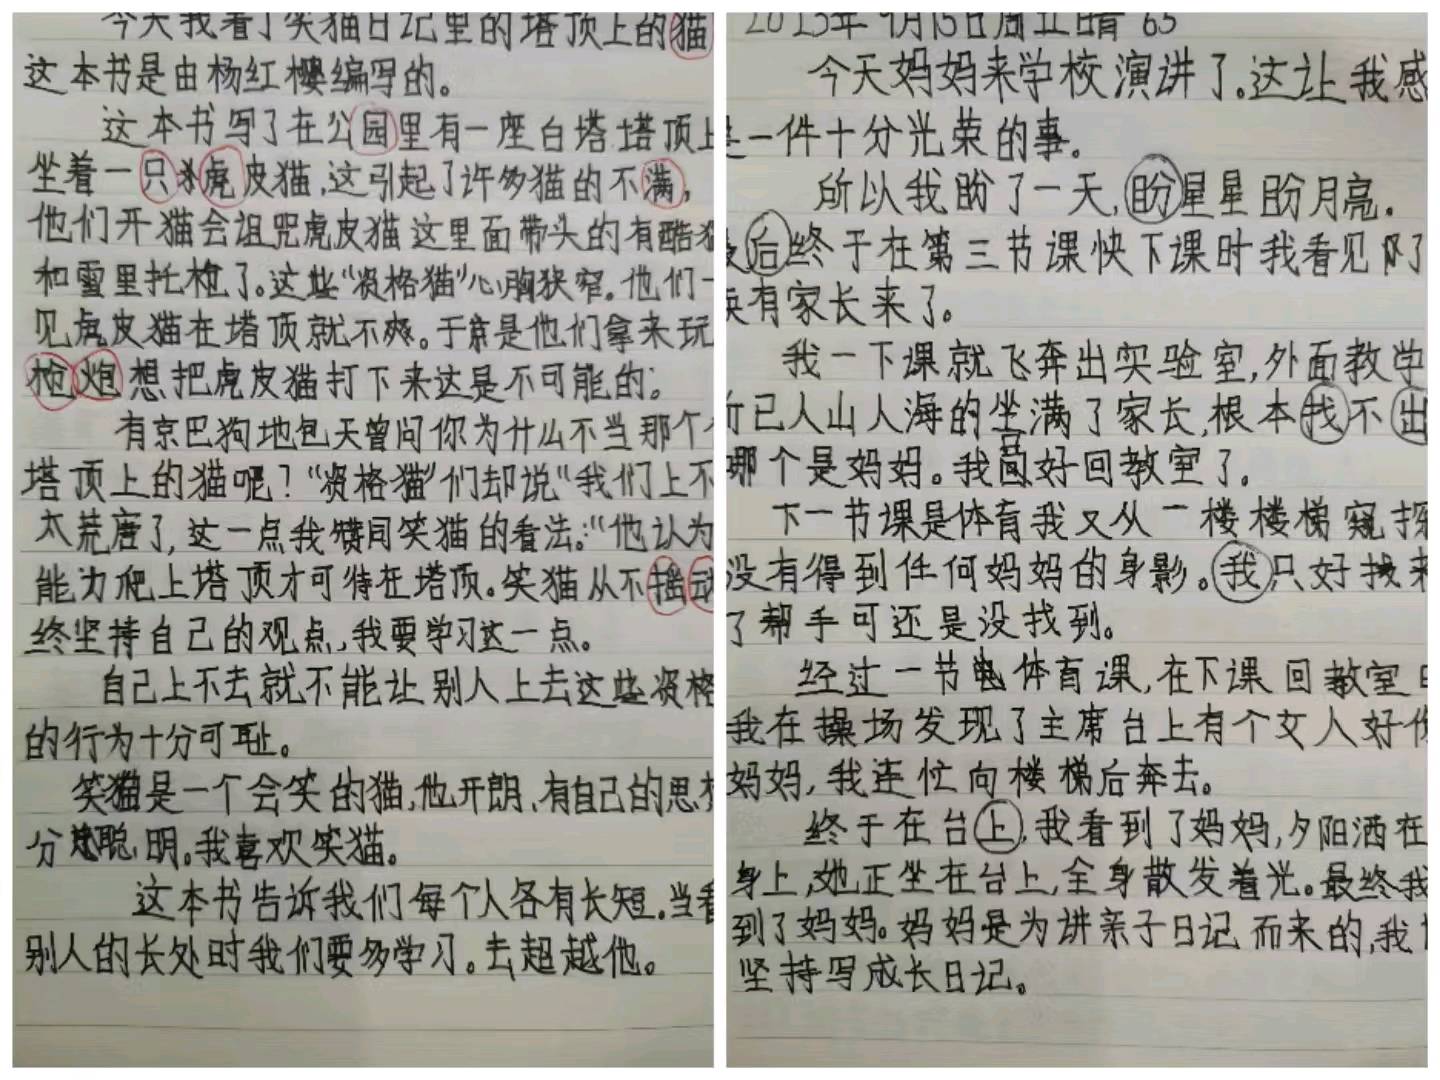 今天我看了笑猫日记里的塔顶上的猫
这本书是由杨红樱编写的。
这本书写了在公园里有一座白塔塔顶上
坐着一只虎皮猫,这引起了许多猫的不满,
他们开猫会诅咒虎皮猫这里面带头的有酷猫
和雪里托枪了。这些“资格猫”心胸狭窄。他们一
见虎皮猫在塔顶就不爽。于是他们拿来玩
枪炮想把虎皮猫打下来这是不可能的。
有京巴狗地包天曾问你为什么不当那个
塔顶上的猫呢?“资格猫”们却说“我们上不
太荒唐了,这一点我赞同笑猫的看法:“他认为
能力爬上塔顶才可待在塔顶。笑猫从不摇动
终坚持自己的观点,我要学习这一点。
自己上不去就不能让别人上去这些资格
的行为十分可耻。
笑猫是一个会笑的猫,他开朗,有自己的思
分聪明。我喜欢笑猫。
这本书告诉我们每个人各有长短。当看
别人的长处时我们要多学习。去超越他。
2023年9月15日周五晴 65
今天妈妈来学校演讲了。这让我感
是一件十分光荣的事。
所以我盼了一天,盼星星盼月亮。
后终于在第三节课快下课时我看见了
有家长来了。
我一下课就飞奔出实验室,外面教学
所已人山人海的坐满了家长,根本找不出
哪个是妈妈。我只好回教室了。
下一节课是体育我又从一楼楼梯窥探
没有得到任何妈妈的身影。我只好找来
了帮手可还是没找到。
经过一节体育课,在下课回教室
我在操场发现了主席台上有个女人好像
妈妈,我连忙向楼梯后奔去。
终于在台上,我看到了妈妈,夕阳洒在
身上,她正坐在台上,全身散发着光。最终我
到了妈妈。妈妈是为讲亲子日记而来的,我
坚持写成长日记。